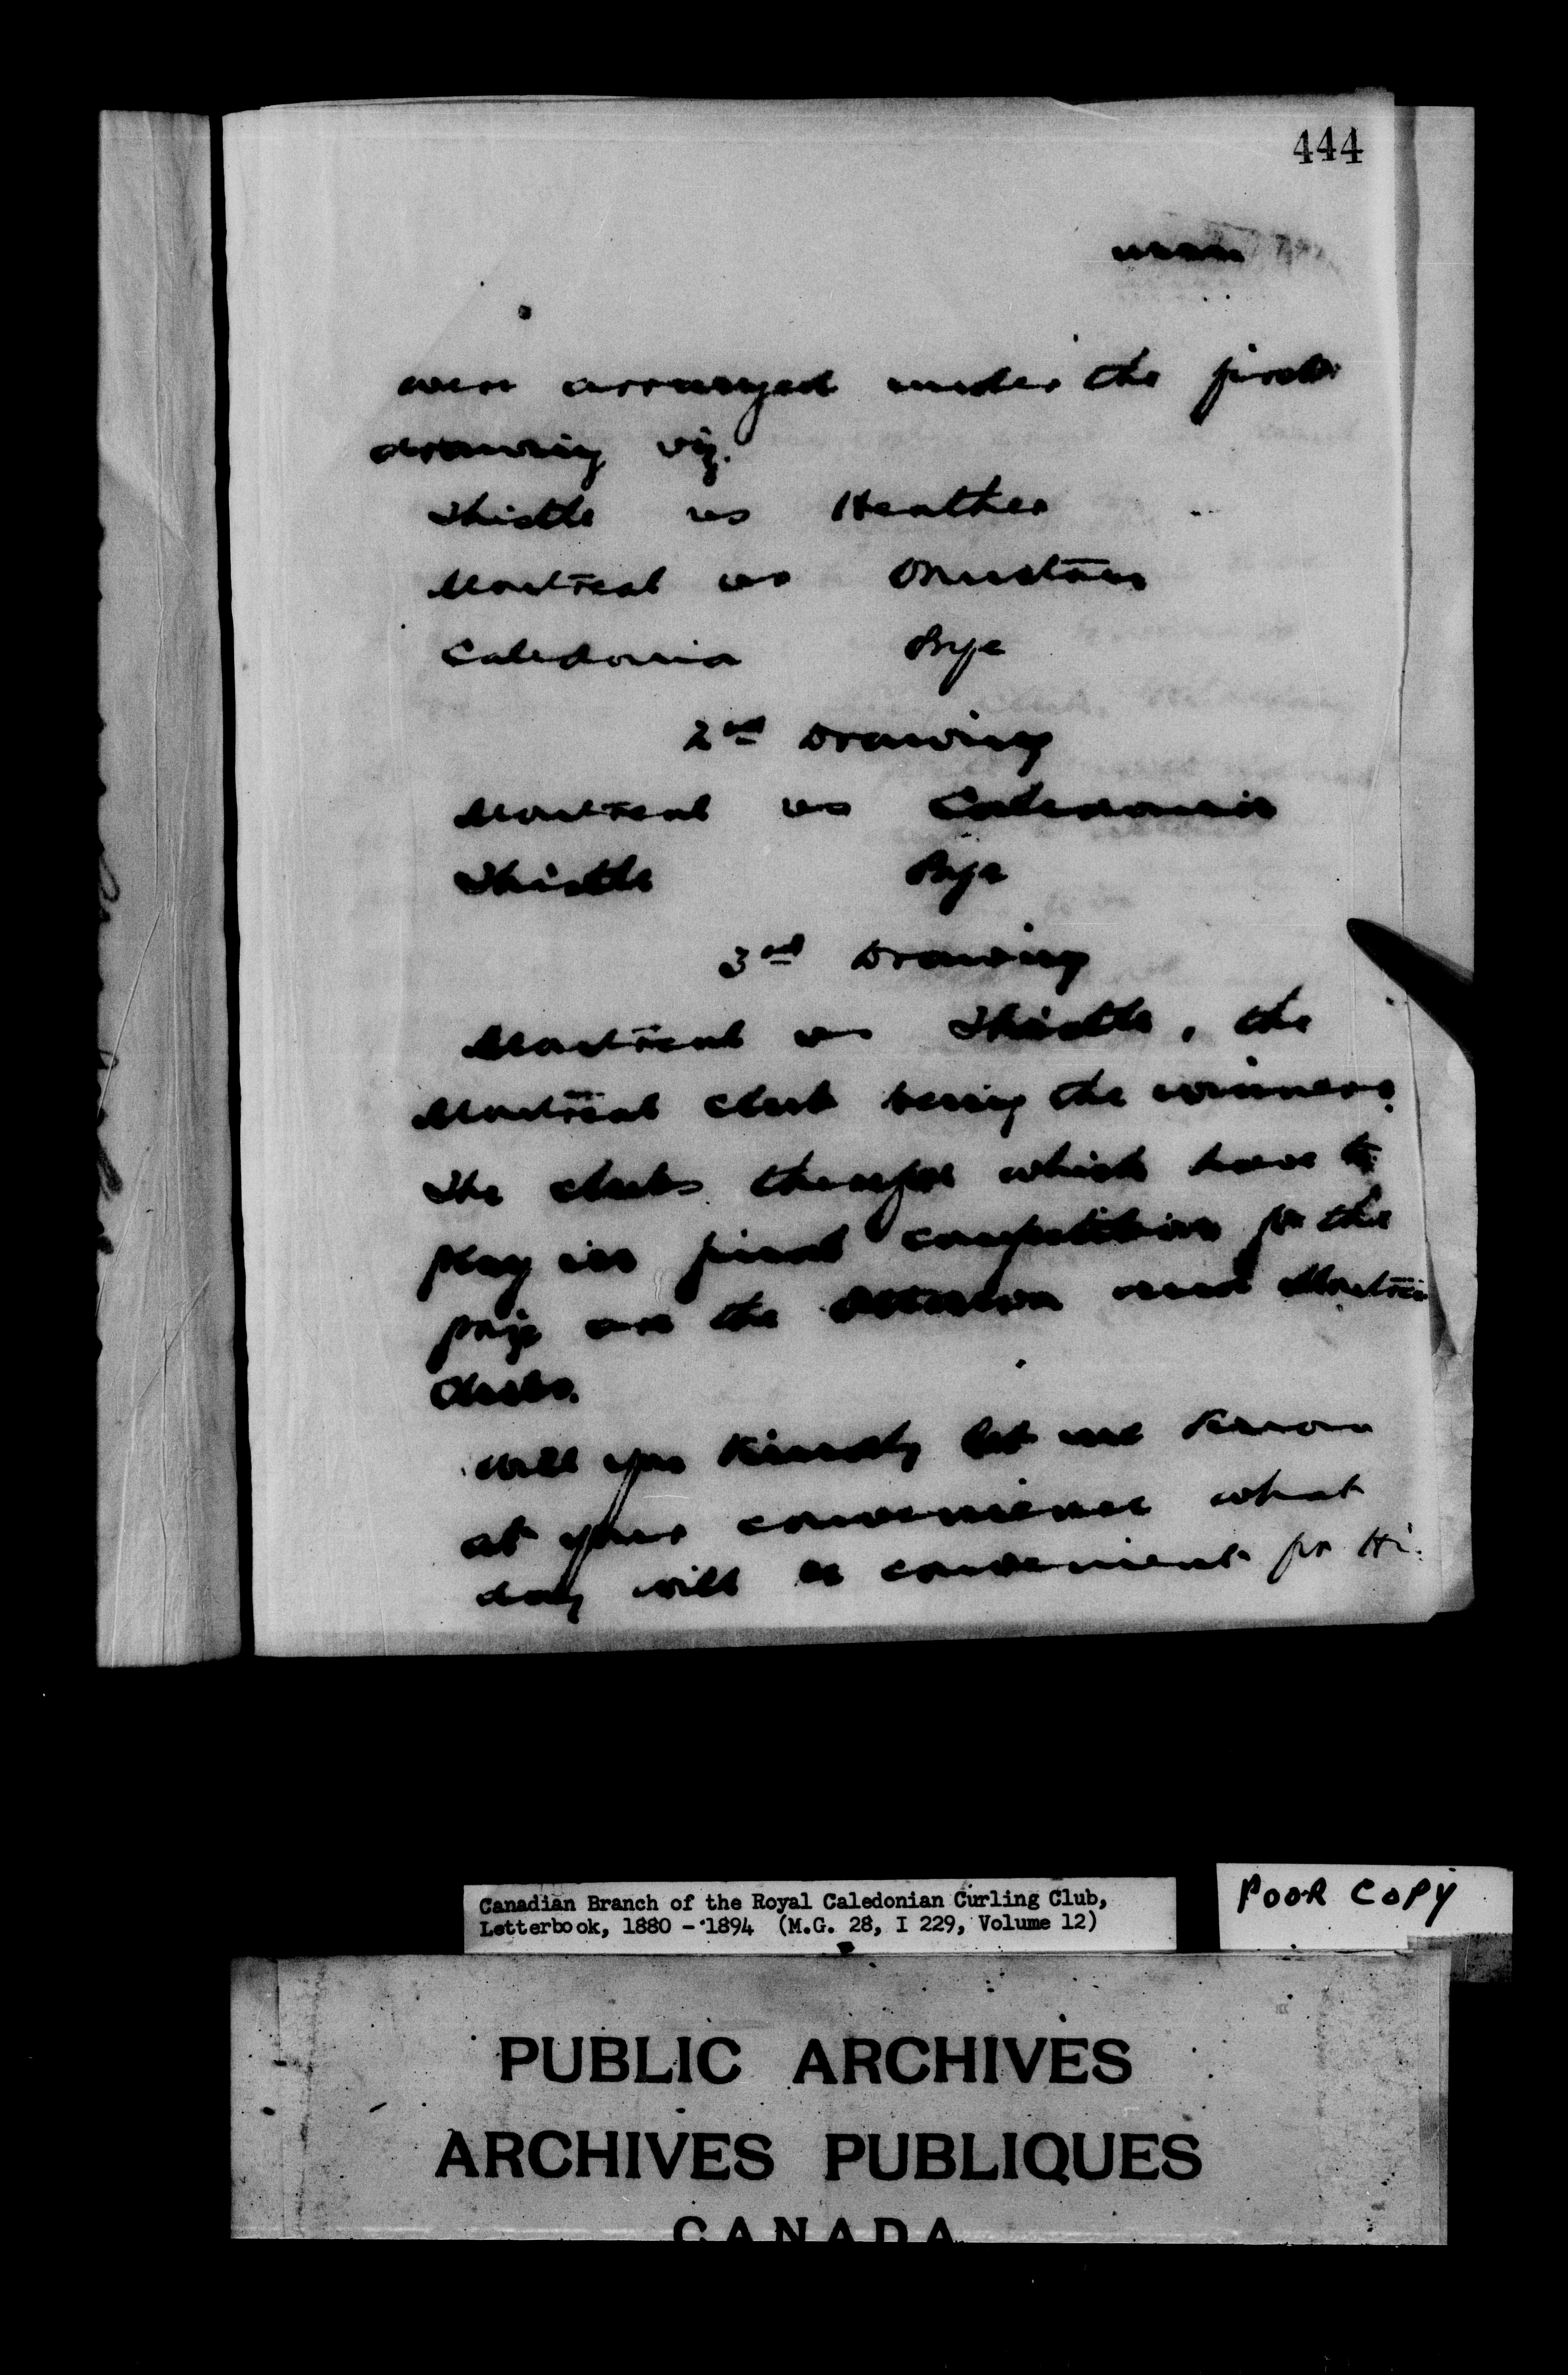 444
were arranged under the first
drawing viz.
Thistle vs Heather
Montreal vs Ormstown
Caledonia Bye
2nd Drawing
Montreal vs Caledonia
Thistle Bye
3rd Drawing
Montreal vs Thistle, the
Montreal club being the winners.
The clubs therefore which have to
play in final competition for the
prize are the Ottawa and Montreal
Clubs.
Will you kindly let me know
at your convenience what
day will be convenient for
Canadian Branch of the Royal Caledonian Curling Club,
Letterbook, 1880 - 1894 (M.G. 28, I 229, Volume 12)
POOR COPY
PUBLIC ARCHIVES
ARCHIVES PUBLIQUES
CANADA